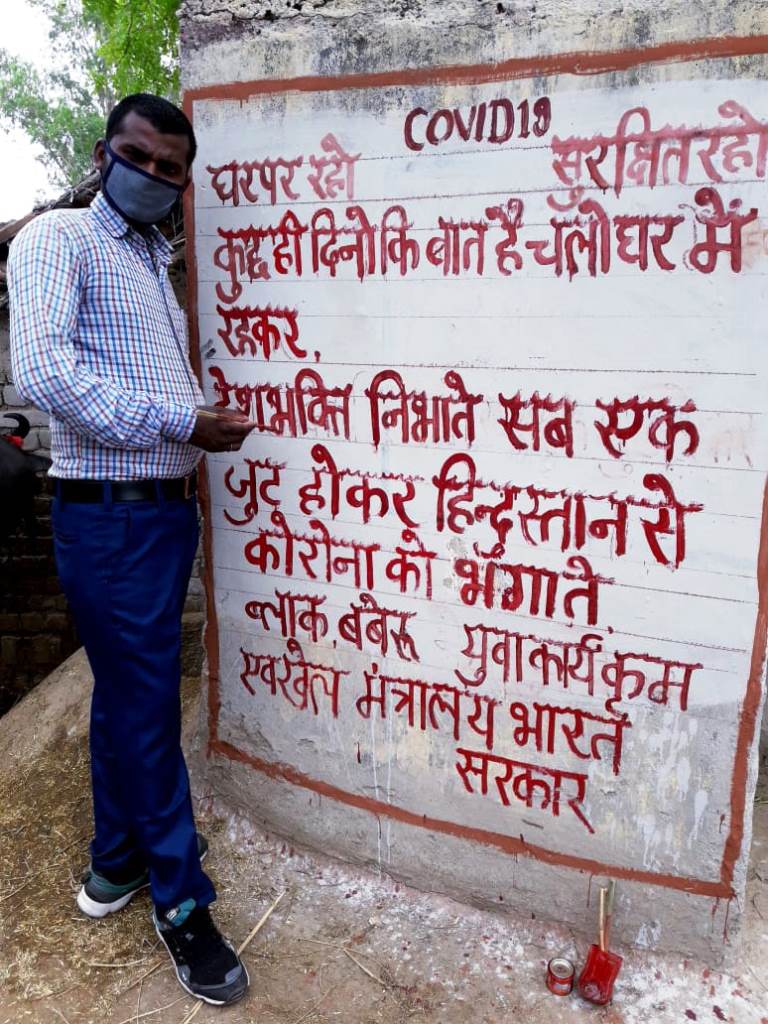 COVID19
घरपर रहो सुरक्षित रहो
कुछ ही दिनो कि बात है चलो घर में
रहकर.
देशभक्ति निभाते सब एक
जुट होकर हिन्दुस्तान से
कोरोना को भगाते.
ब्लाक. बबेरू युवा कार्यकृम
एवखेल मंत्रालय भारत
सरकार